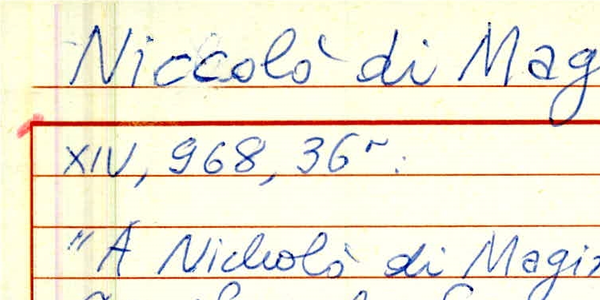 Niccolò di Mag
XIV, 968, 36r:
"A Nicholò di Magi